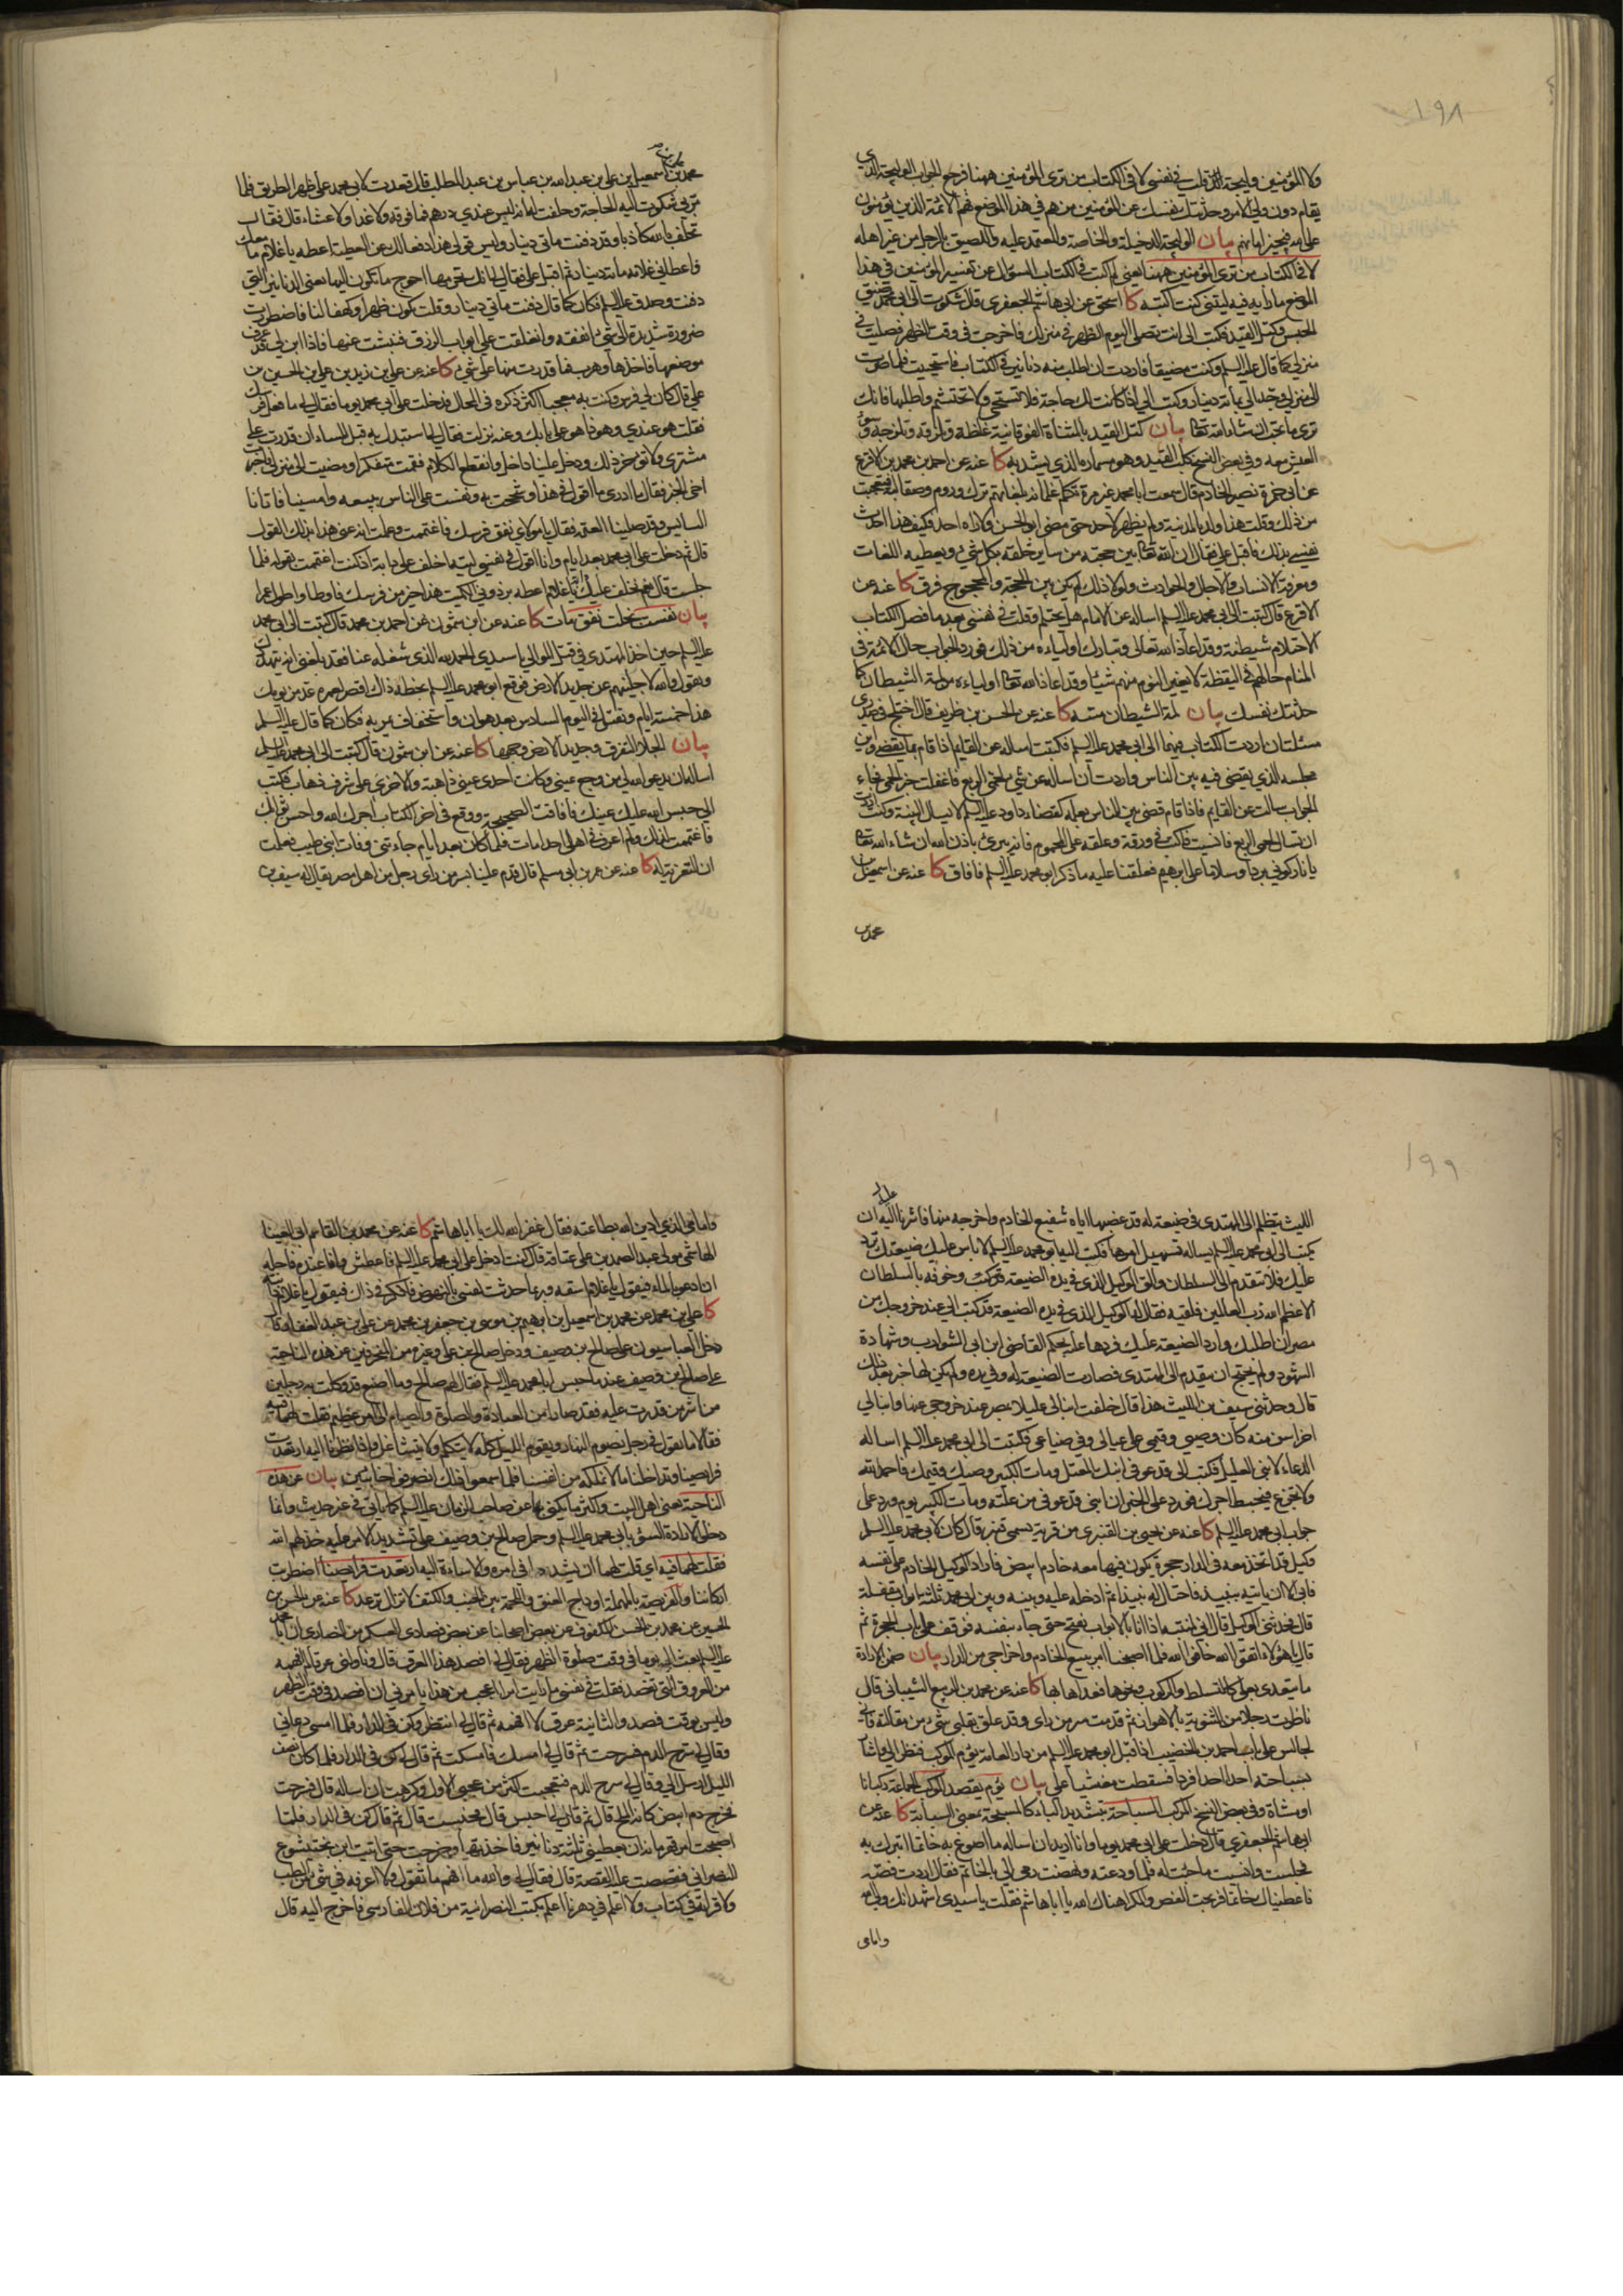 ١٩٨
ولا المؤمنين وليجة قلت في نفسي لا في الكتاب من ترى المؤمنين ههنا فرجع الجواب الوليجة الذي
يقام دون ولي الامر وحدثتك نفسك عن المؤمنين من هم في هذا الموضع فهم الائمة الذين يؤمنون
على الله فيجيز امانهم بيان الوليجة الدخيلة والخاصة والمعتمد عليه واللصيق بالرجل من غير اهله
لا في الكتاب من ترى المؤمنين ههنا يعني لم اكتب في الكتاب السؤال عن تفسير المؤمنين في هذا
الموضع كا اسحق عن ابي هاشم الجعفري قال شكوت الى ابي محمد ضيق
الحبس وكتل القيد فكتب الي انت تصلي اليوم الظهر في منزلك فاخرجت في وقت الظهر فصليت في
منزلي كما قال عليه السلم وكنت مضيقا فاردت ان اطلب منه دنانير في الكتاب فاستحييت فلما صرت
الى منزلي وجه الي بمأة دينار وكتب الي اذا كانت لك حاجة فلا تستحي ولا تحتشم واطلبها فانك
ترى ما تحب ان شاء الله تعا بيان كتل القيد بالمثناة الفوقانية غلظه وتلزقه وتلزجه وسوء
العيش معه وفي بعض النسخ كلب القيد وهو مسماره الذي يشد به كا عنه عن احمد بن محمد بن الاقرع
عن ابي حمزة نصير الخادم قال سمعت ابا محمد غير مرة يكلم غلمانه بلغاتهم ترك وروم وصقالبة فتعجبت
من ذلك وقلت هذا ولد بالمدينة ولم يظهر لاحد حتى مضى ابو الحسن ولا راه احد فكيف هذا احدث
نفسي بذلك فاقبل علي فقال ان الله تعا بين حجته من ساير خلقه بكل شيء ويعطيه اللغات
ومعرفة الانساب والاجال والحوادث ولولا ذلك لم يكن بين الحجة والمحجوج فرق كا عنه عن
الاقرع قال كتبت الى ابي محمد عليه السلم اساله عن الامام هل يحتلم وقلت في نفسي بعد ما فصل الكتاب
الاحتلام شيطنة وقد اعاذ الله تعالى وتبارك اولياءه من ذلك فورد الجواب حال الائمة في
المنام حالهم في اليقظة لا يغير النوم منهم شيئا وقد اعاذ الله تعا اولياءه من لمة الشيطان كما
حدثتك نفسك بيان لمة الشيطان مسه كا عنه عن الحسن بن ظريف قال اختلج في صدري
مسئلتان اردت الكتاب فيهما الى ابي محمد عليه السلم فكتبت اساله عن القايم اذا قام بما يقضي واين
مجلسه الذي يقضي فيه بين الناس واردت ان اساله عن شيء لحمى الربع فاغفلت خبر الحمى فجاء
الجواب سالت عن القايم فاذا قام قضى بين الناس بعلمه كقضاء داود عليه السلم لا يسال البينة وكنت اردت
ان تسال لحمى الربع فانسيت فاكتب في ورقة وعلقه على المحموم فانه يبرئ باذن الله ان شاء الله تعا
يا نار كوني بردا وسلاما على ابرهيم فعلقنا عليه ما ذكر ابو محمد عليه السلم فافاق كا عنه عن اسمعيل بن
محمد بن
محمد بن اسمعيل بن علي بن عبد الله بن عباس بن عبد المطلب قال قعدت لابي محمد على ظهر الطريق فلما
مر بي شكوت اليه الحاجة وحلفت له انه ليس عندي درهم فما فوقه ولا غداء ولا عشاء قال فقال
تحلف بالله كاذبا وقد دفنت ماتي دينار وليس قولي هذا دفعا لك عن العطية اعطه يا غلام ما معك
فاعطاني غلامه ماة دينار ثم اقبل علي فقال لي انك تحرمها احوج ما تكون اليها يعني الدنانير التي
دفنت وصدق عليه السلم فكان كما قال دفنت ماتي دينار وقلت يكون ظهرا وكهفا لنا فاضطررت
ضرورة شديدة الى شيء انفقه وانغلقت علي ابواب الرزق فنبشت عنها فاذا ابن لي قد عرف
موضعها فاخذها وهرب فما قدرت منها على شيء كا عنه عن علي بن زيد بن علي بن الحسين بن
علي قال كان لي فرس وكنت به معجبا اكثر ذكره في المحال فدخلت على ابي محمد يوما فقال لي ما فعل فرسك
فقلت هو عندي وهو ذا هو على بابك وعنه نزلت فقال لي استبدل به قبل المساء ان قدرت على
مشتري ولا تؤخر ذلك ودخل علينا داخل وانقطع الكلام فقمت متفكرا ومضيت الى منزلي فاخبرت
اخي الخبر فقال ما ادري ما اقول في هذا وشححت به ونفست على الناس ببيعه وامسينا فاتانا
السايس وقد صلينا العتمة فقال يا مولاي نفق فرسك فاغتممت وعلمت انه عنى هذا بذلك القول
قال ثم دخلت على ابي محمد بعد ايام وانا اقول في نفسي ليته اخلف علي دابة اذ كنت اغتممت بقوله فلما
جلست قال نعم نخلف عليك يا غلام اعطه برذوني الكميت هذا خير من فرسك واوطا واطول عمرا
بيان نفست بخلت نفق مات كا عنه عن ابن شمون عن احمد بن محمد قال كتبت الى ابي محمد
عليه السلم حين اخذ المهتدي في قتل الموالي يا سيدي الحمد لله الذي شغله عنا فقد بلغني انه يتهددك
ويقول والله لاجلينهم عن جديد الارض فوقع ابو محمد عليه السلم بخطه ذاك اقصر لعمره عد من يومك
هذا خمسة ايام ويقتل في اليوم السادس بعد هوان واستخفاف يمر به فكان كما قال عليه السلم
بيان الجلاء التفرق وجديد الارض وجهها كا عنه عن ابن شمون قال كتبت الى ابي محمد عليه السلم
اساله ان يدعو الله لي من وجع عيني وكانت احدى عيني ذاهبة والاخرى على شرف ذهاب فكتب
الي حبس الله عليك عينك فافاقت الصحيحة ووقع في اخر الكتاب اجرك الله واحسن ثوابك
فاغتممت لذلك ولم اعرف في اهلي احدا مات فلما كان بعد ايام جاءتني وفات ابني طيب فعلمت
ان التعزية له كا عنه عن عمر بن ابي مسلم قال قدم علينا بسر من راى رجل من اهل مصر يقال له سيف بن
١٩٩
الليث يتظلم الى المهتدي في ضيعة له قد غصبها اياه شفيع الخادم واخرجه منها فاشرنا اليه ان
يكتب الى ابي محمد عليه السلم يساله تسهيل امرها فكتب اليه ابو محمد عليه السلم لا باس عليك ضيعتك ترد
عليك فلا تتقدم الى السلطان والق الوكيل الذي في يده الضيعة وخوفه بالسلطان
الاعظم الله رب العالمين فلقيه فقال له الوكيل الذي في يده الضيعة قد كتب الي عند خروجك من
مصر ان اطلبك وارد الضيعة عليك فردها عليه بحكم القاضي ابن ابي الشوارب وشهادة
الشهود ولم يحتج ان يتقدم الى المهتدي فصارت الضيعة له وفي يده ولم يكن لها خبر بعد ذلك
قال وحدثني سيف بن الليث هذا قال خلفت ابنا لي عليلا بمصر عند خروجي عنها وابنا لي
اخر اسن منه كان وصيي وقيمي على عيالي وفي ضياعي فكتبت الى ابي محمد عليه السلم اساله
الدعاء لابني العليل فكتب الي قد عوفي ابنك المعتل ومات الكبير وصيك وقيمك فاحمد الله
ولا تجزع فيحبط اجرك فورد علي الخبر ان ابني قد عوفي من علته ومات الكبير يوم ورد علي
جواب ابي محمد عليه السلم كا عنه عن يحيى بن القنبري من قرية يسمى قير قال كان لابي محمد عليه السلم
وكيل قد اتخذ معه في الدار حجرة يكون فيها معه خادم ابيض فاراد الوكيل الخادم على نفسه
فابى الا ان ياتيه بنبيذ فاحتال له نبيذا ثم ادخله عليه وبينه وبين ابي محمد ثلثة ابواب مقفلة
قال فحدثني الوكيل قال اني لمنتبه اذ انا بالابواب تفتح حتى جاء بنفسه فوقف على باب الحجرة ثم
قال يا هؤلاء اتقوا الله خافوا الله فلما اصبحنا امر ببيع الخادم واخراجي من الدار بيان ضمن الارادة
ما يتعدى بعلى كالتسلط والركوب ونحوها فعداها بها كا عنه عن محمد بن الربيع الشيباني قال
ناظرت رجلا من الثنوية بالاهواز ثم قدمت سر من راى وقد علق بقلبي شيء من مقالته فاني
لجالس على باب احمد بن الخضيب اذ اقبل ابو محمد عليه السلم من دار العامة يؤم الموكب فنظر الي واشار
بسباحته احد احد فرد فسقطت مغشيا علي بيان يؤم يقصد الموكب الجماعة ركبانا
او مشاة وفي بعض النسخ المركب السباحة بتشديد الباء كالمسبحة بمعنى السبابة كا عنه عن
ابي هاشم الجعفري قال دخلت على ابي محمد يوما وانا اريد ان اساله ما اصوغ به خاتما اتبرك به
فجلست وانسيت ما جئت له فلما ودعته ونهضت رمى الي بالخاتم فقال اردت فضة
فاعطيناك خاتما فربحت الفص والكرا هناك الله يا ابا هاشم فقلت يا سيدي اشهد انك ولي الله
وامامي
وامامي الذي ادين الله بطاعته فقال غفر الله لك يا ابا هاشم كا عنه عن محمد بن القاسم ابي العينا
الهاشمي مولى عبد الصمد بن علي عتاقة قال كنت ادخل على ابي محمد عليه السلم فاعطش وانا عنده فاجله
ان ادعو بالماء فيقول يا غلام اسقه وربما حدثت نفسي بالنهوض فافكر في ذلك فيقول يا غلام دابته
كا علي بن محمد عن محمد بن اسمعيل بن ابرهيم بن موسى بن جعفر بن محمد عن علي بن عبد الغفار قال
دخل العباسيون على صالح بن وصيف ودخل صالح بن علي وغيره من المنحرفين عن هذه الناحية
على صالح بن وصيف عندما حبس ابا محمد عليه السلم فقال لهم صالح وما اصنع قد وكلت به رجلين
من اشر من قدرت عليه فقد صارا من العبادة والصلوة والصيام الى امر عظيم فقلت لهما ما فيه
فقالا ما تقول في رجل يصوم النهار ويقوم الليل كله لا يتكلم ولا يتشاغل واذا نظرنا اليه ارتعدت
فرايصنا وتداخلنا ما لا نملكه من انفسنا فلما سمعوا ذلك انصرفوا خائبين بيان عن هذه
الناحية يعني اهل البيت واكثر ما يكنى بها عن صاحب الزمان عليه السلم كما ياتي في غير حديث وانما
دخلوا لارادة السوء بابي محمد عليه السلم وحمل صالح بن وصيف على تشديد الامر عليه خذلهم الله
فقلت لهما فيه اي قلت لهما ان يشددا في امره والاساءة اليه ارتعدت فرايصنا اضطربت
اركاننا والفريصة بالمهملة اوداج العنق واللحمة بين الجنب والكتف لا تزال ترعد كا عنه عن الحسن بن
الحسين عن محمد بن الحسن المكفوف عن بعض اصحابنا عن بعض فصادي العسكر من النصارى ان ابا محمد
عليه السلم بعث اليه يوما في وقت صلوة الظهر فقال لي افصد هذا العرق قال وناولني عرقا لم افهمه
من العروق التي تفصد فقلت في نفسي ما رايت امرا اعجب من هذا يامرني ان افصد في وقت الظهر
وليس بوقت فصد والثانية عرق لا افهمه ثم قال لي انتظر وكن في الدار فلما امسى دعاني
وقال لي سرح الدم فسرحت ثم قال لي امسك فامسكت ثم قال لي كن في الدار فلما كان نصف
الليل ارسل الي وقال لي سرح الدم فتعجبت اكثر من عجبي الاول وكرهت ان اساله قال فسرحت
فخرج دم ابيض كانه الملح قال ثم قال لي احبس قال فحبست قال ثم قال كن في الدار فلما
اصبحت امر قهرمانه ان يعطيني ثلثة دنانير فاخذتها وخرجت حتى اتيت ابن بختيشوع
النصراني فقصصت عليه القصة قال فقال لي والله ما افهم ما تقول ولا اعرفه في شيء من الطب
ولا قراته في كتاب ولا اعلم في دهرنا اعلم بكتب النصرانية من فلان الفارسي فاخرج اليه قال